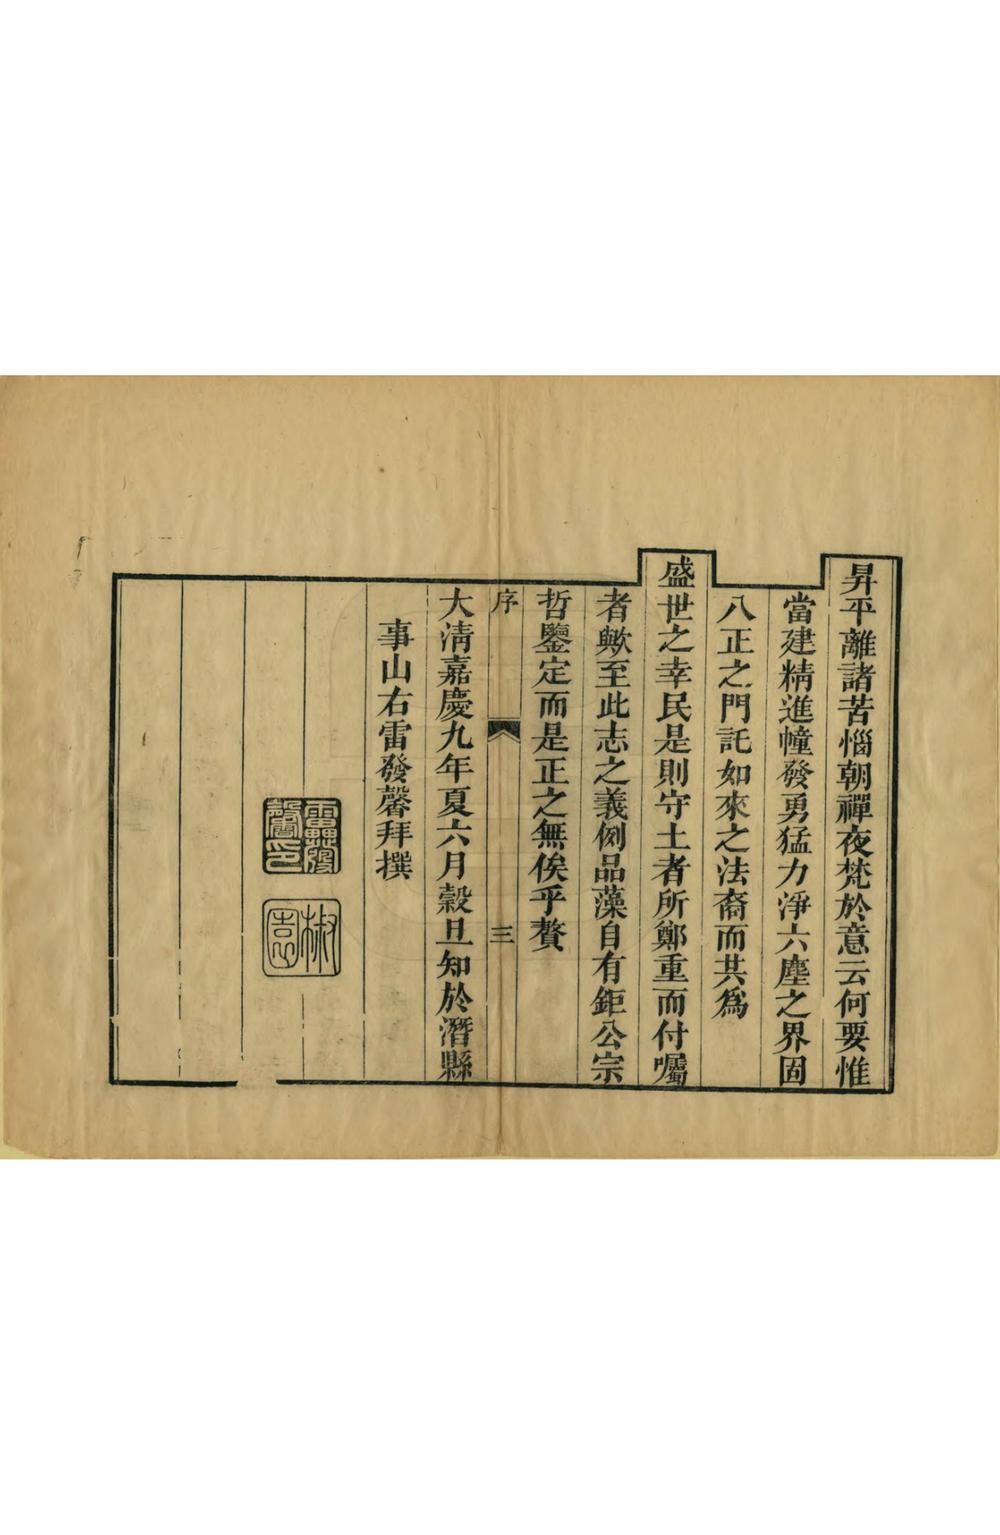 昇平離諸苦惱朝禪夜梵於意云何要惟
當建精進幢發勇猛力淨六塵之界固
八正之門託如來之法裔而共爲
盛世之幸民是則守土者所鄭重而付囑
者歟至此志之義例品藻自有鉅公宗
哲鑒定而是正之無俟乎贅
序
三
大清嘉慶九年夏六月穀旦知於潛縣
事山右雷發馨拜撰
雷發馨印
椒園